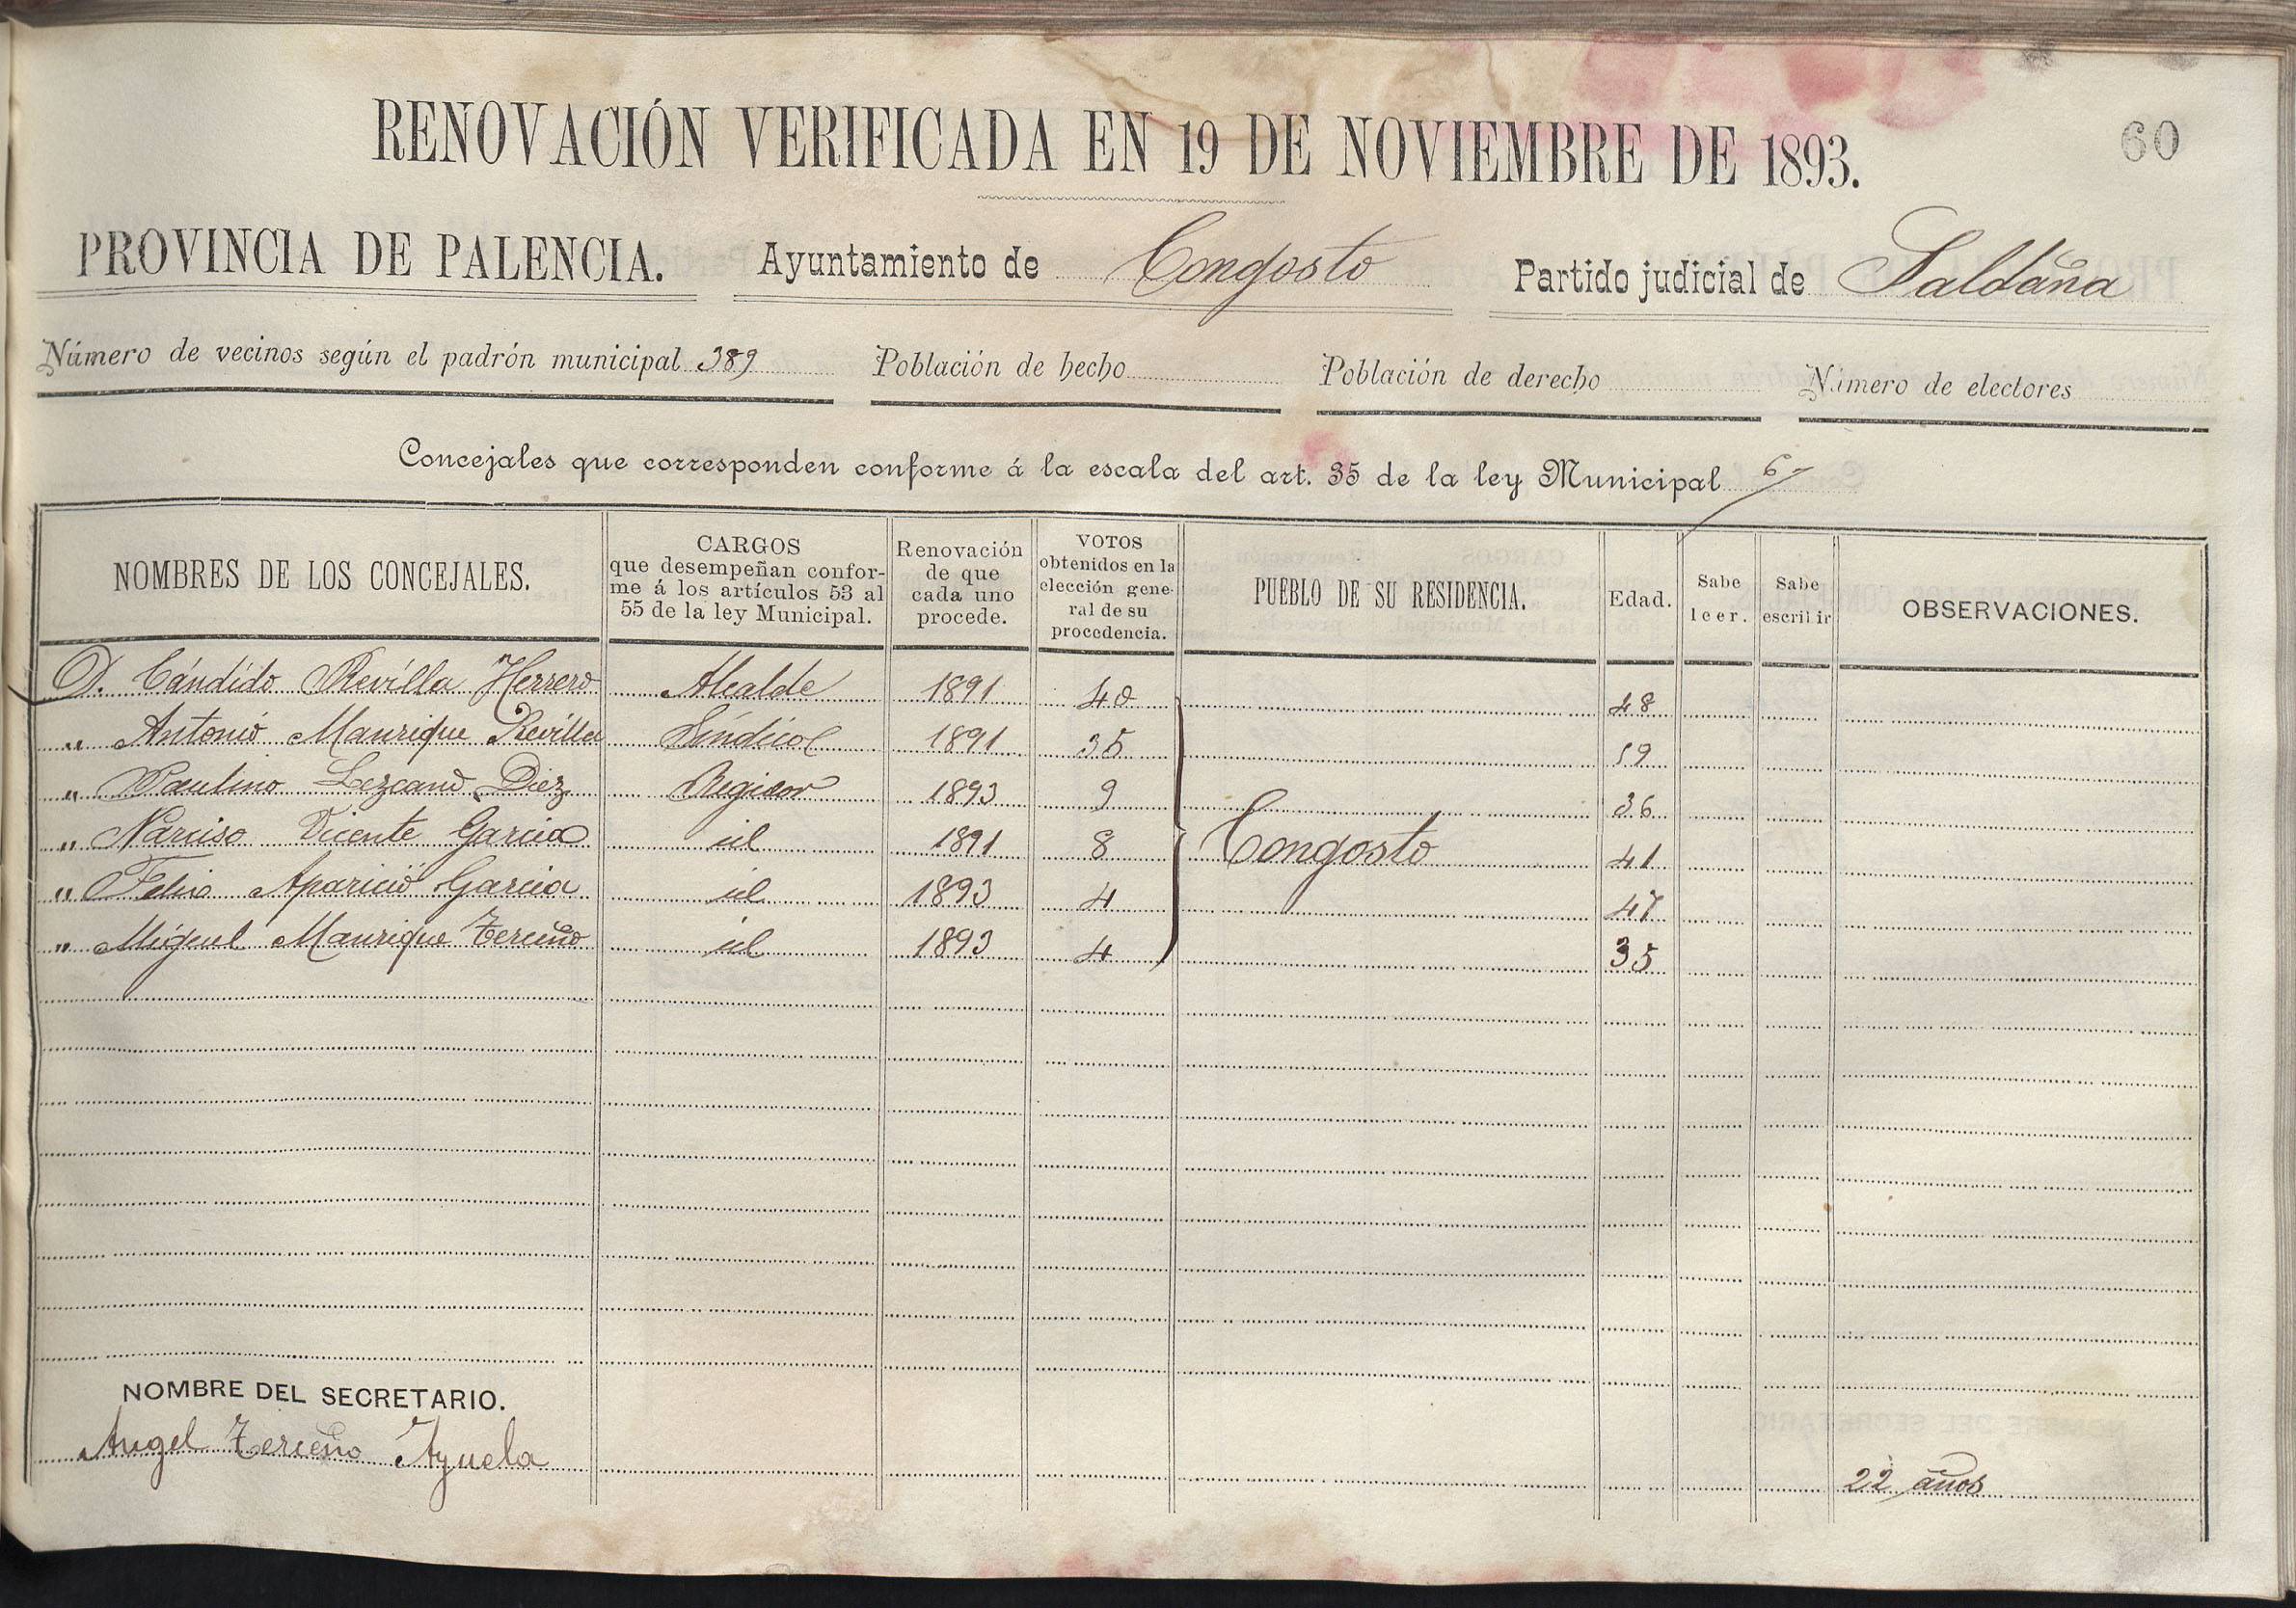 RENOVACIÓN VERIFICADA EN 19 DE NOVIEMBRE DE 1893.
60
PROVINCIA DE PALENCIA. Ayuntamiento de Congosto Partido judicial de Saldaña
Número de vecinos según el padrón municipal 389 Población de hecho Población de derecho Número de electores
Concejales que corresponden conforme á la escala del art. 35 de la ley Municipal 6
NOMBRES DE LOS CONCEJALES.
CARGOS
que desempeñan confor-
me á los artículos 53 al
55 de la ley Municipal.
Renovación
de que
cada uno
procede.
VOTOS
obtenidos en la
elección gene-
ral de su
procedencia.
PUEBLO DE SU RESIDENCIA.
Edad.
Sabe
leer.
Sabe
escribir
OBSERVACIONES.
D. Cándido Revilla Herrero Alcalde 1891 40 48
" Antonio Manrique Revilla Síndico 1891 35 59
" Paulino Lezcano Diez Regidor 1893 9 36
" Narciso Vicente Garcia id 1891 8 Congosto 41
" Felix Aparicio Garcia id 1893 4 47
" Miguel Manrique Terceño id 1893 4 35
NOMBRE DEL SECRETARIO.
Angel Terceño Ayuela 22 años